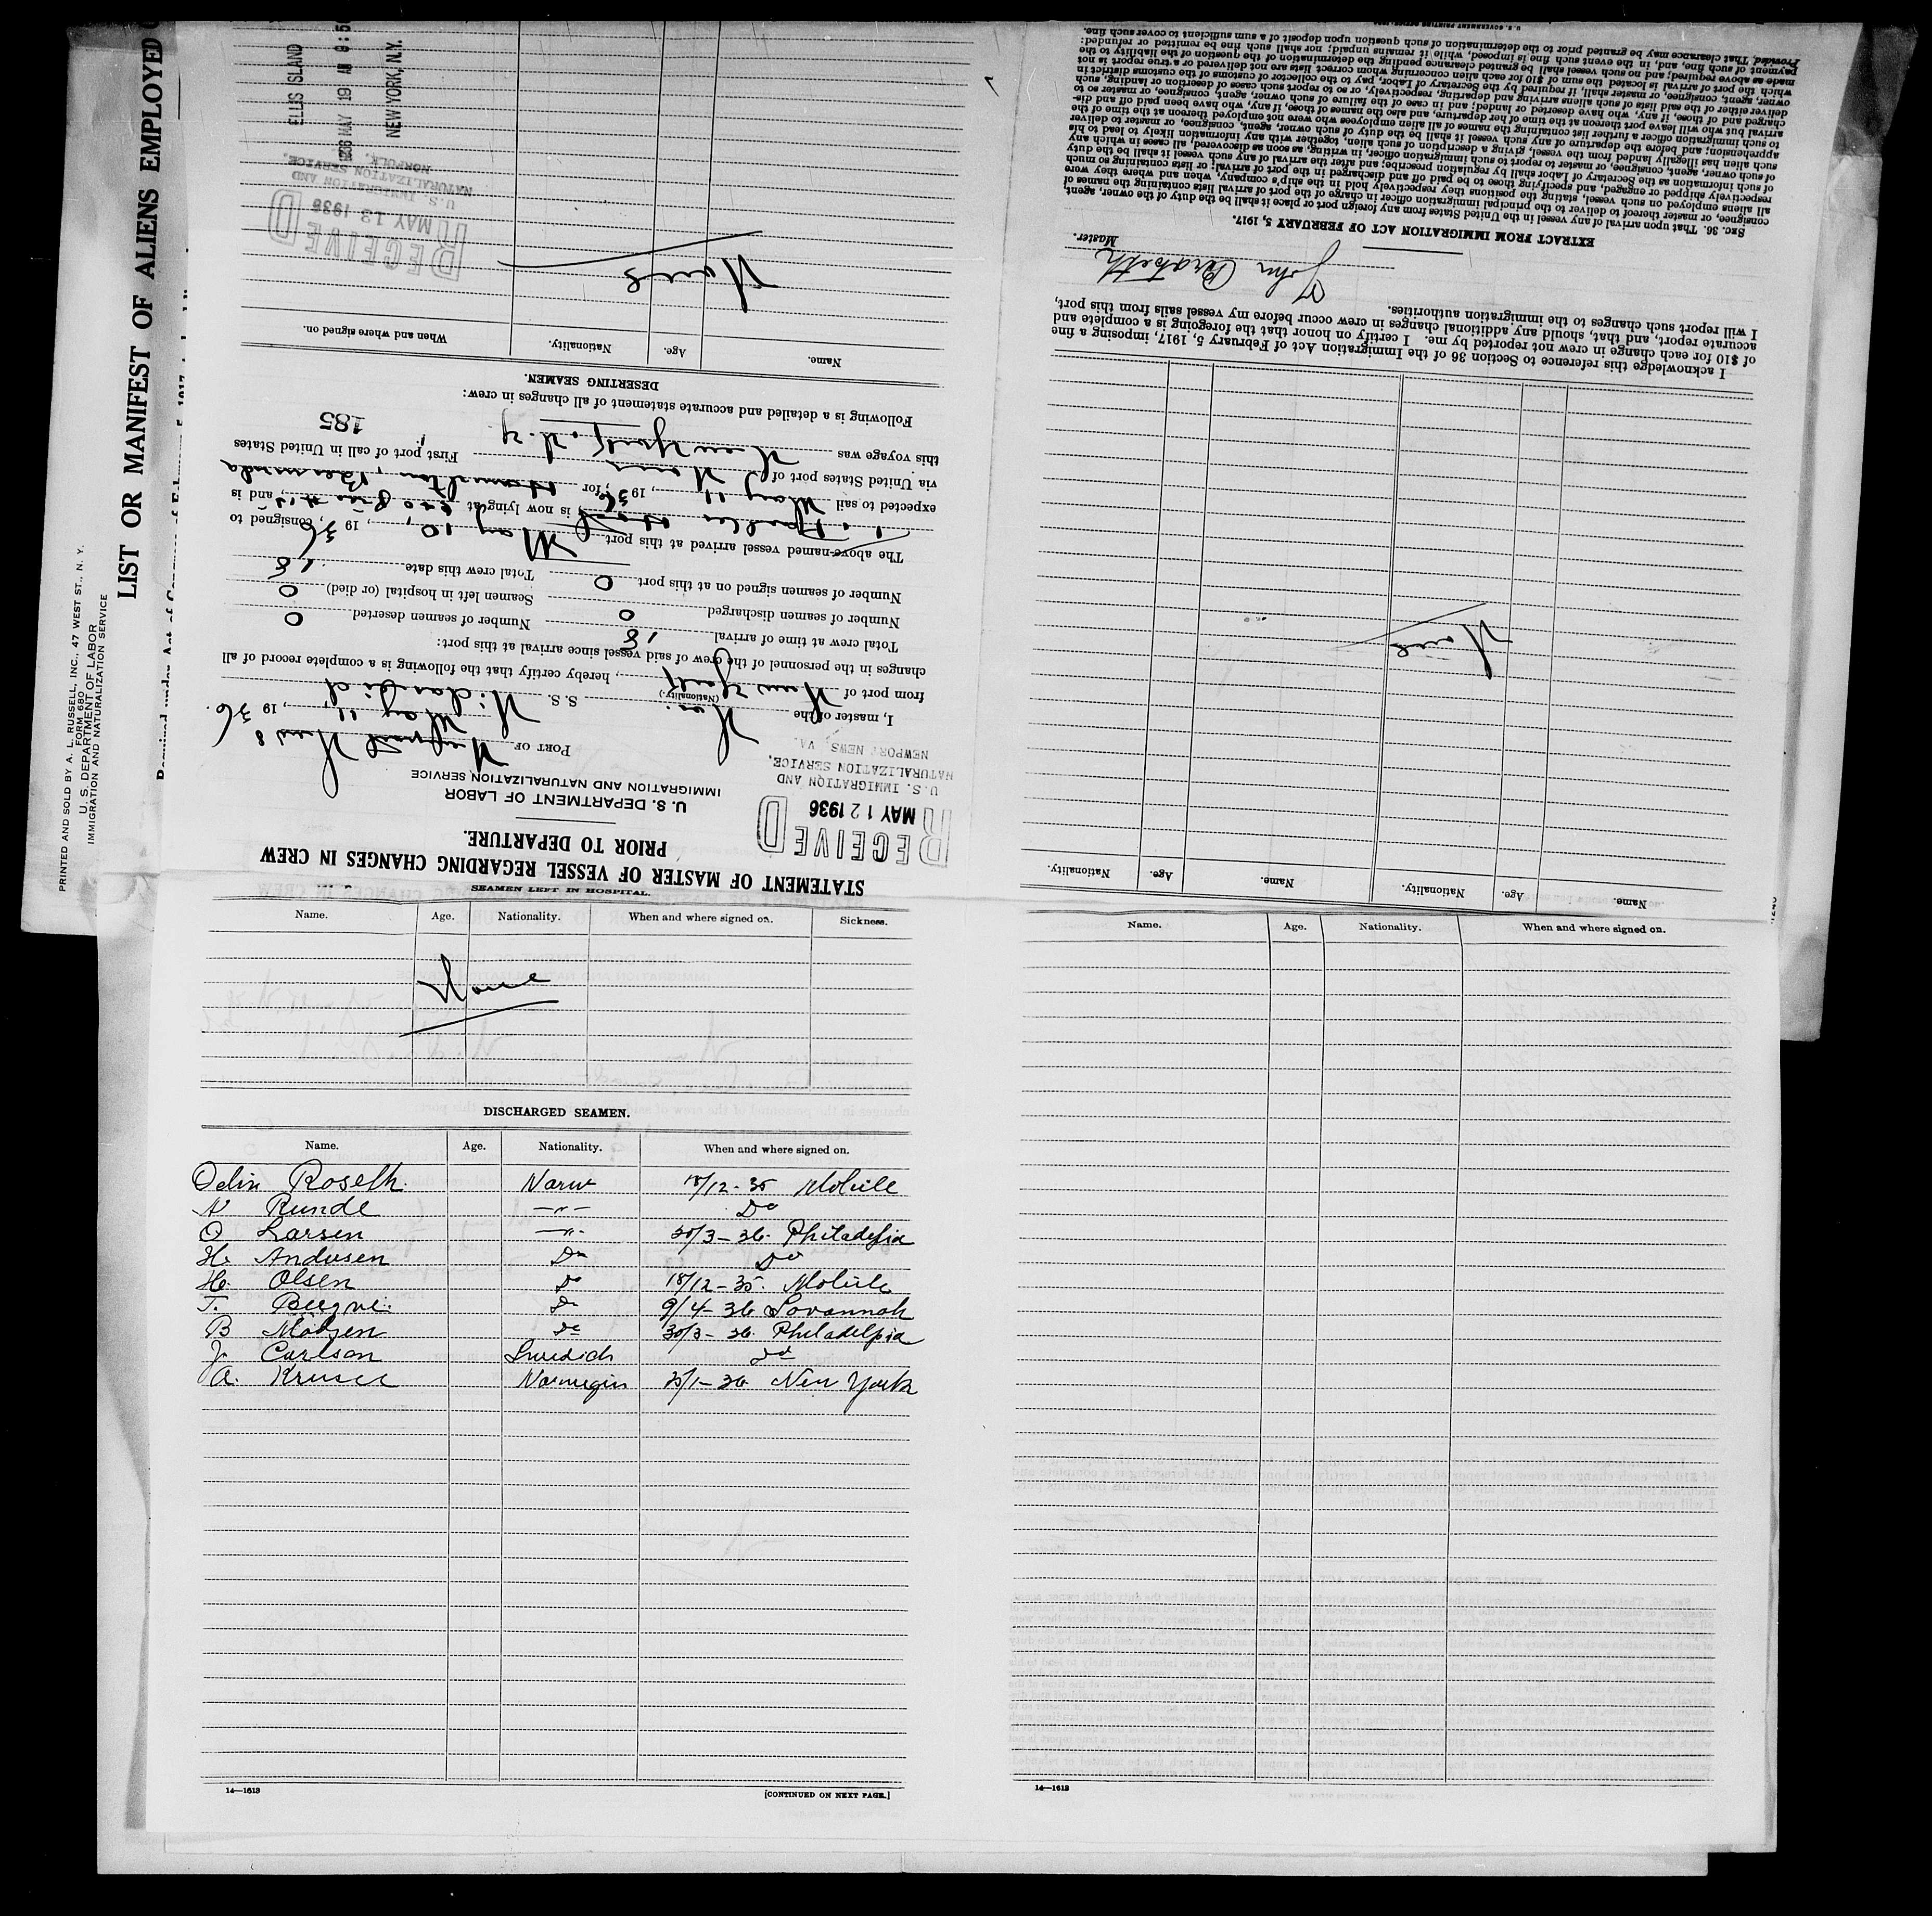 PRINTED AND SOLD BY A. L. RUSSELL, INC., 47 WEST ST., N. Y.
FORM 680
U. S. DEPARTMENT OF LABOR
IMMIGRATION AND NATURALIZATION SERVICE
LIST OR MANIFEST OF ALIENS EMPLOYED
ELLIS ISLAND
1936 MAY 19 AM 8:5
NEW YORK, N.Y.
STATEMENT OF MASTER OF VESSEL REGARDING CHANGES IN CREW
PRIOR TO DEPARTURE.
RECEIVED
MAY 12 1936
U. S. IMMIGRATION AND
NATURALIZATION SERVICE,
NEWPORT NEWS, VA.
U. S. DEPARTMENT OF LABOR
IMMIGRATION AND NATURALIZATION SERVICE
PORT OF Newport News
May 11, 1936.
I, master of the Nor. S. S.
(Nationality.)
from port of New York, hereby certify that the following is a complete record of all
changes in the personnel of the crew of said vessel since arrival at this port:
Total crew at time of arrival 18 Number of seamen deserted 0
Number of seamen discharged 0 Seamen left in hospital (or died) 0
Number of seamen signed on at this port 0 Total crew this date 18
The above-named vessel arrived at this port May 10, 1936, consigned to
is now lying at Pier, and is
expected to sail May 11, 1936, for Hamilton, Bermuda
via United States port of None First port of call in United States
this voyage was New York, N. Y.
185
Following is a detailed and accurate statement of all changes in crew:
DESERTING SEAMEN.
Name. Age. Nationality. When and where signed on.
None
RECEIVED
MAY 13 1936
U. S. IMMIGRATION AND
NATURALIZATION SERVICE
NORFOLK,
Name. Age. Nationality. Name. Age. Nationality.
None
I acknowledge this reference to Section 36 of the Immigration Act of February 5, 1917, imposing a fine
of $10 for each change in crew not reported by me. I certify on honor that the foregoing is a complete and
accurate report, and that, should any additional changes in crew occur before my vessel sails from this port,
I will report such changes to the immigration authorities.
John
Master.
EXTRACT FROM IMMIGRATION ACT OF FEBRUARY 5, 1917.
SEC. 36. That upon arrival of any vessel in the United States from any foreign port or place it shall be the duty of the owner, agent,
consignee, or master thereof to deliver to the principal immigration officer in charge of the port of arrival lists containing the names of
all aliens employed on such vessel, stating the positions they respectively hold in the ship's company, when and where they were
respectively shipped or engaged, and specifying those to be paid off and discharged in the port of arrival; or lists containing so much
of such information as the Secretary of Labor shall by regulation prescribe; and after the arrival of any such vessel it shall be the duty
of such owner, agent, consignee, or master to report to such immigration officer, in writing, as soon as discovered, all cases in which any
such alien has illegally landed from the vessel, giving a description of such alien, together with any information likely to lead to his
apprehension; and before the departure of any such vessel it shall be the duty of such owner, agent, consignee, or master to deliver
to such immigration officer a further list containing the names of all alien employees who were not employed thereon at the time of the
arrival but who will leave port thereon at the time of her departure, and also the names of those, if any, who have been paid off and dis-
charged and of those, if any, who have deserted or landed; and in case of the failure of such owner, agent, consignee, or master so to
deliver either of the said lists of such aliens arriving and departing, respectively, or so to report such cases of desertion or landing, such
owner, agent, consignee, or master shall, if required by the Secretary of Labor, pay to the collector of customs of the customs district in
which the port of arrival is located the sum of $10 for each alien concerning whom correct lists are not delivered or a true report is not
made as above required; and no such vessel shall be granted clearance pending the determination of the question of the liability to the
payment of such fine, and, in the event such fine is imposed, while it remains unpaid; nor shall such fine be remitted or refunded:
Provided, That clearance may be granted prior to the determination of such question upon deposit of a sum sufficient to cover such fine.
SEAMEN LEFT IN HOSPITAL.
Name. Age. Nationality. When and where signed on. Sickness.
None
DISCHARGED SEAMEN.
Name. Age. Nationality. When and where signed on.
Odin Roseth. Norw 18/12-35 Mobile
N Runde —"— Do
O Larsen —"— 30/3-36 Philadelfia
H. Andersen Do Do
H. Olsen Do 18/12-35. Mobile
T. Do 9/4-36 Savannah
B Madsen Do 30/3-36 Philadelpia
J. Carlson Swedich Do
A. Kruse Norwegin 25/1-36 New York
14—1613 [CONTINUED ON NEXT PAGE.]
Name. Age. Nationality. When and where signed on.
14—1613